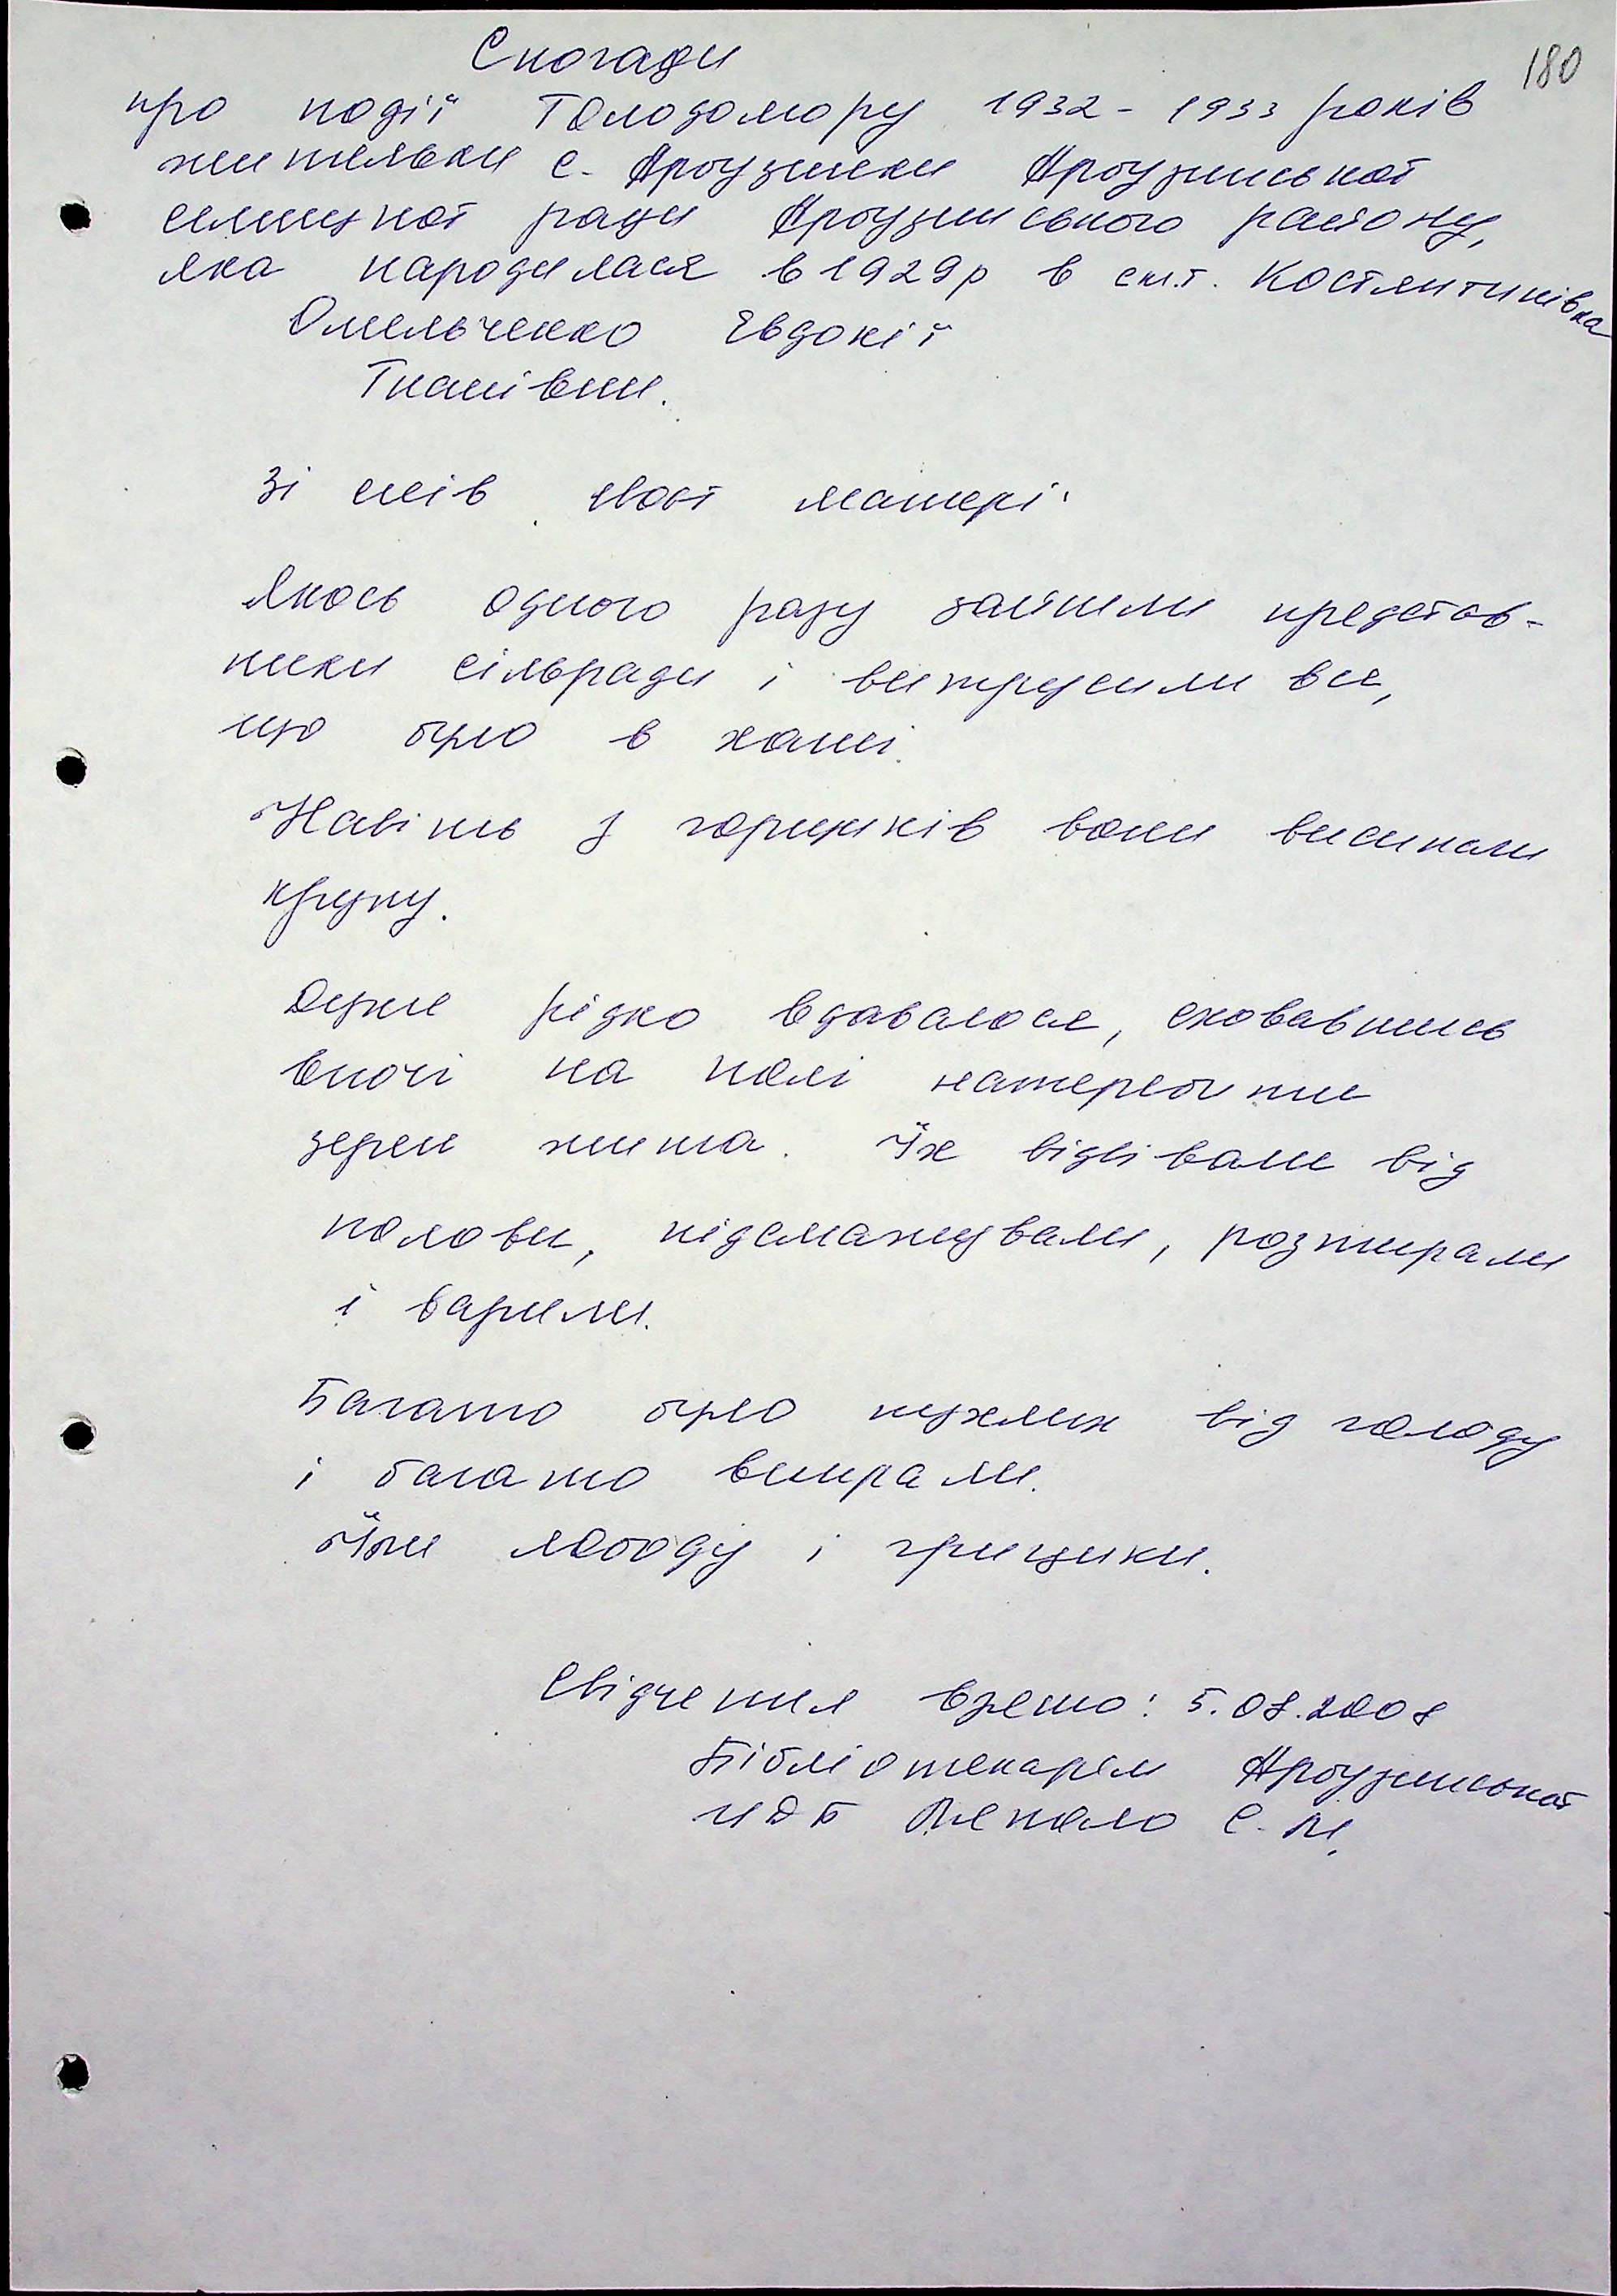 180
Спогади
про події Голодомору 1932 - 1933 років
жительки с. Арбузинки Арбузинської
селищної ради Арбузинського району,
яка народилася в 1929р в смт. Костянтинівка
Омельченко Євдокії
Гнатівни.
Зі слів моєї матері:
Якось одного разу зайшли представ-
ники сільради і витрусили все,
що було в хаті.
Навіть з горщиків вони висипали
крупу.
Дуже рідко вдавалося, сховавшись
вночі на полі натеребити
зерен жита. Їх відвівали від
полови, підсмажували, розтирали
і варили.
Багато було пухлих від голоду
і багато вмирали.
Їли лободу і грицики.
Свідчення взято: 5.08.2008
Бібліотекарем Арбузинської
ЦДБ С. М.